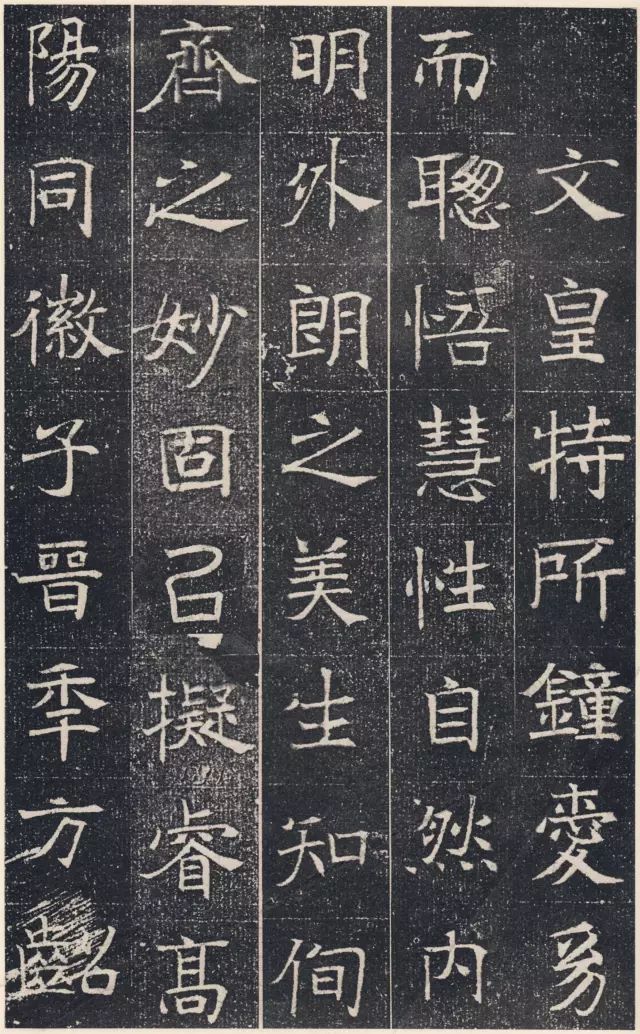 文皇特所鐘愛幼
而聰悟慧性自然內
明外朗之美生知徇
齊之妙固㠯擬睿高
陽同徽子晉季方齠